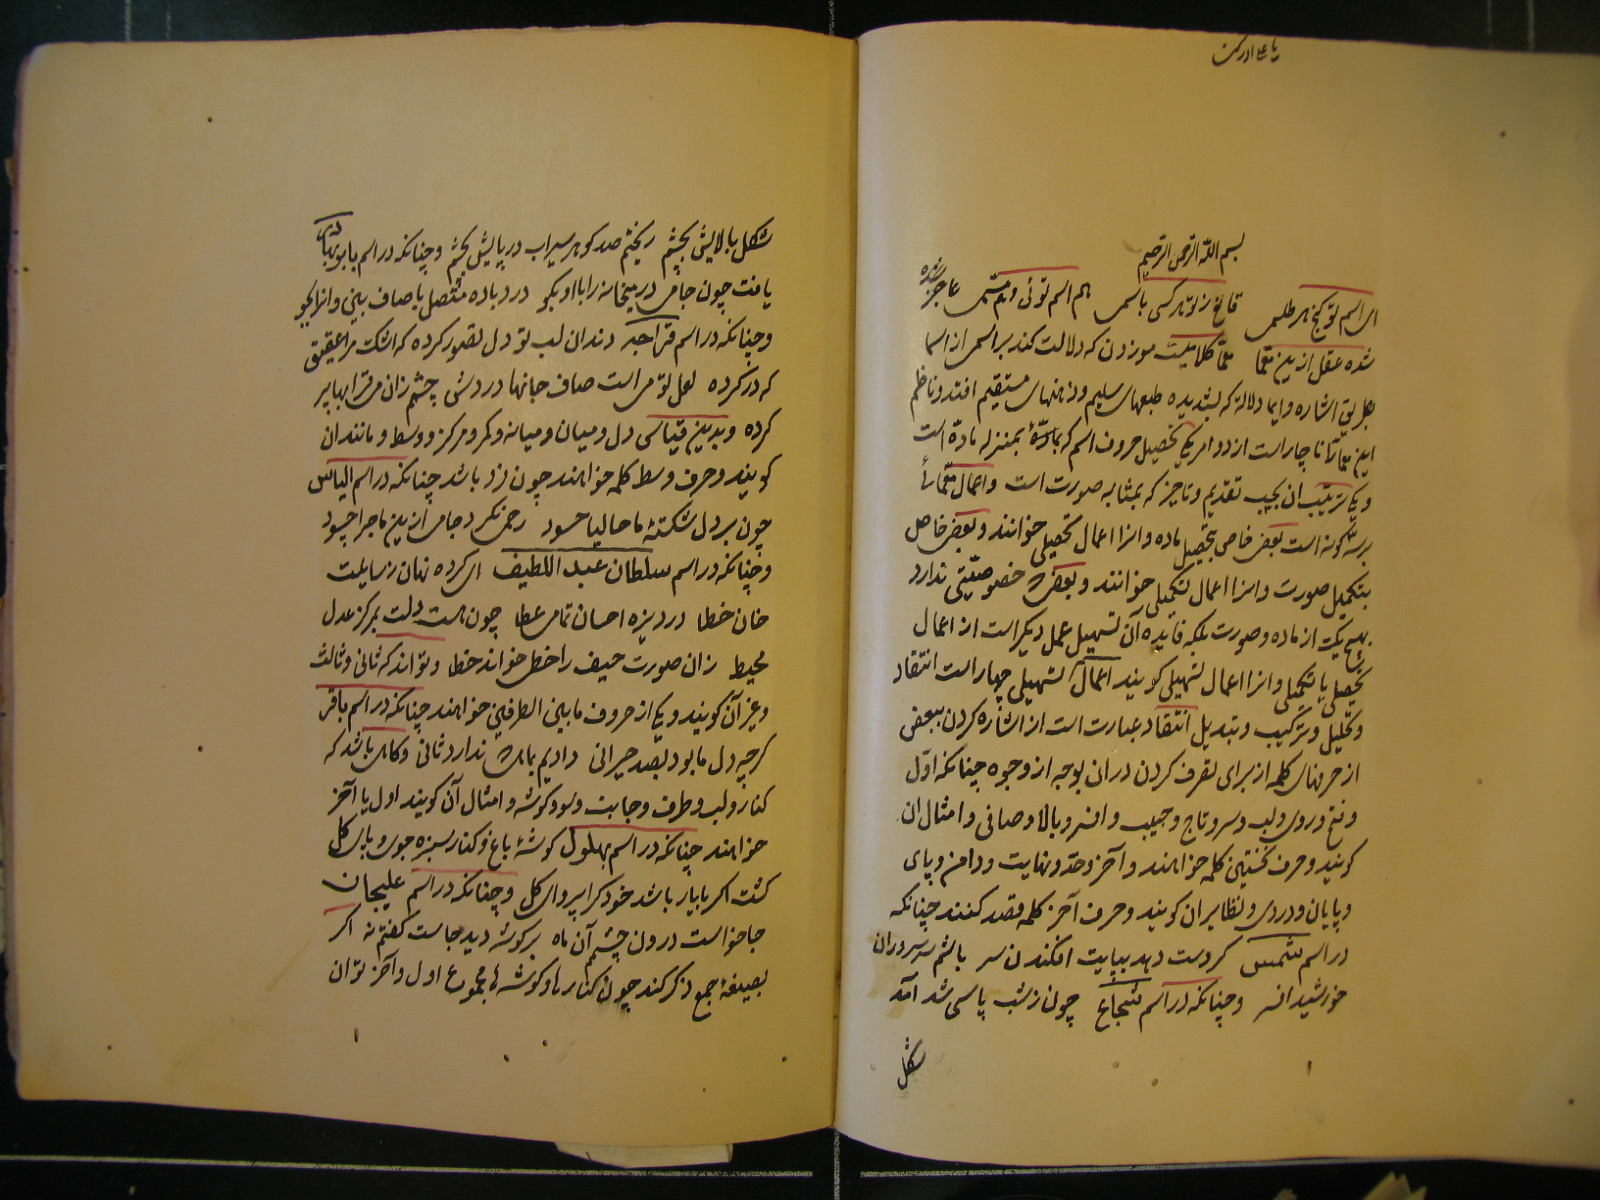 بسم الله الرحمن الرحیم
ای اسم تو کنج هر طلسمی قانع ز تو هر کسی باسمی هم اسم توئی و هم مسمی عاجز شده
شده عقل ازین معما معما کلامیست موزون که دلالت کند بر اسمی از اسما
بطریق اشاره و ایما دلالة که پسندیده طبعهای سلیم و ذهنهای مستقیم افتد و ناظم
این معما را ناچار است از دو امر یکی تحصیل حروف اسم که بمنزله ماده است
و یکی ترتیب ان بحسب تقدیم و تاخیر که بمثابه صورت است و اعمال معمائی
بر سه گونه است بعض خاص بتحصیل ماده و انرا اعمال تحصیلی خوانند و بعض خاص
بتکمیل صورت و انرا اعمال تکمیلی خوانند و بعض خصوصیتی ندارد
بهیچ یک از ماده و صورت بلکه فایده آن تسهیل عمل دیگر است از اعمال
تحصیلی یا تکمیلی و انرا اعمال تسهیلی گویند اعمال تسهیلی چهار است انتقاد
و تحلیل و ترکیب و تبدیل انتقاد عبارت است از اشاره کردن ببعضی
از حرفهای کلمه از برای تصرف کردن دران بوجه از وجوه چنانکه اول
و فتح و روی و لب و سر و تاج و جیب و افسر و بالا و صافی و امثال ان
گویند و حرف نخستین کلمه خواهند و آخر و حد و نهایت و دامن و پای
و پایان و دردی و نظایر ان گویند و حرف آخر کلمه قصد کنند چنانکه
در اسم شمس گر دست دهد بپایت افکندن سر باشم سر سروران
خورشید افسر و چنانکه در اسم شجاع چون ز شب پاسی شد آمد
شکل
شکل بالایش بچشم ریختم صد گوهر سیراب در پایش بچشم و چنانکه در اسم بابو بهادر
یافت چون جامی در میخانه را با او بگو درد باده متصل با صاف بینی و انرا بجو
و چنانکه در اسم قراجه دندان لب تو دل تصور کرده که اشک مرا عقیق
که در کرده لعل تو می است صاف جانها دردش چشم زان می قرابها پر
کرده و بدین قیاسی دل و میان و میانه و کمر و مرکز و وسط و مانند ان
گویند و حرف وسط کلمه خواهند چون فرد باشد چنانکه در اسم الیاس
چون بر دل شکستهٔ ما حالیا حسود رحمی نکرد جامی ازین ماجرا چسود
و چنانکه در اسم سلطان عبد اللطیف ای کرده نهان ز سایلت
خان خطا در دیزه احسان تمامی عطا چون هست دلت بمرکز عدل
محیط زان صورت حیف را خطی خواند خطا و تواند که ثانی و ثالث
و غیر آن گویند و یکی از حروف ما بین الطرفین خواهند چنانکه در اسم باقر
گرچه دل ما بود بصد حیرانی دادیم بماهی ندارد ثانی و گاهی باشد که
کنار و لب و طرف و جانب و سو و گوشه و امثال آن گویند اول یا آخر
خواهند چنانکه در اسم بهلول گوشهٔ باغ و کنار سبزه جوی و پای گل
گشت اگر با یار باشد خود کرا پروای گل و چنانکه در اسم علیجان
جا خواست درون چشم آن ماه بر گوشه دیده جاست گفتم نه اگر
بصیغهٔ جمع ذکر کنند چون کنارها و گوشه ها مجموع اول و آخر توان